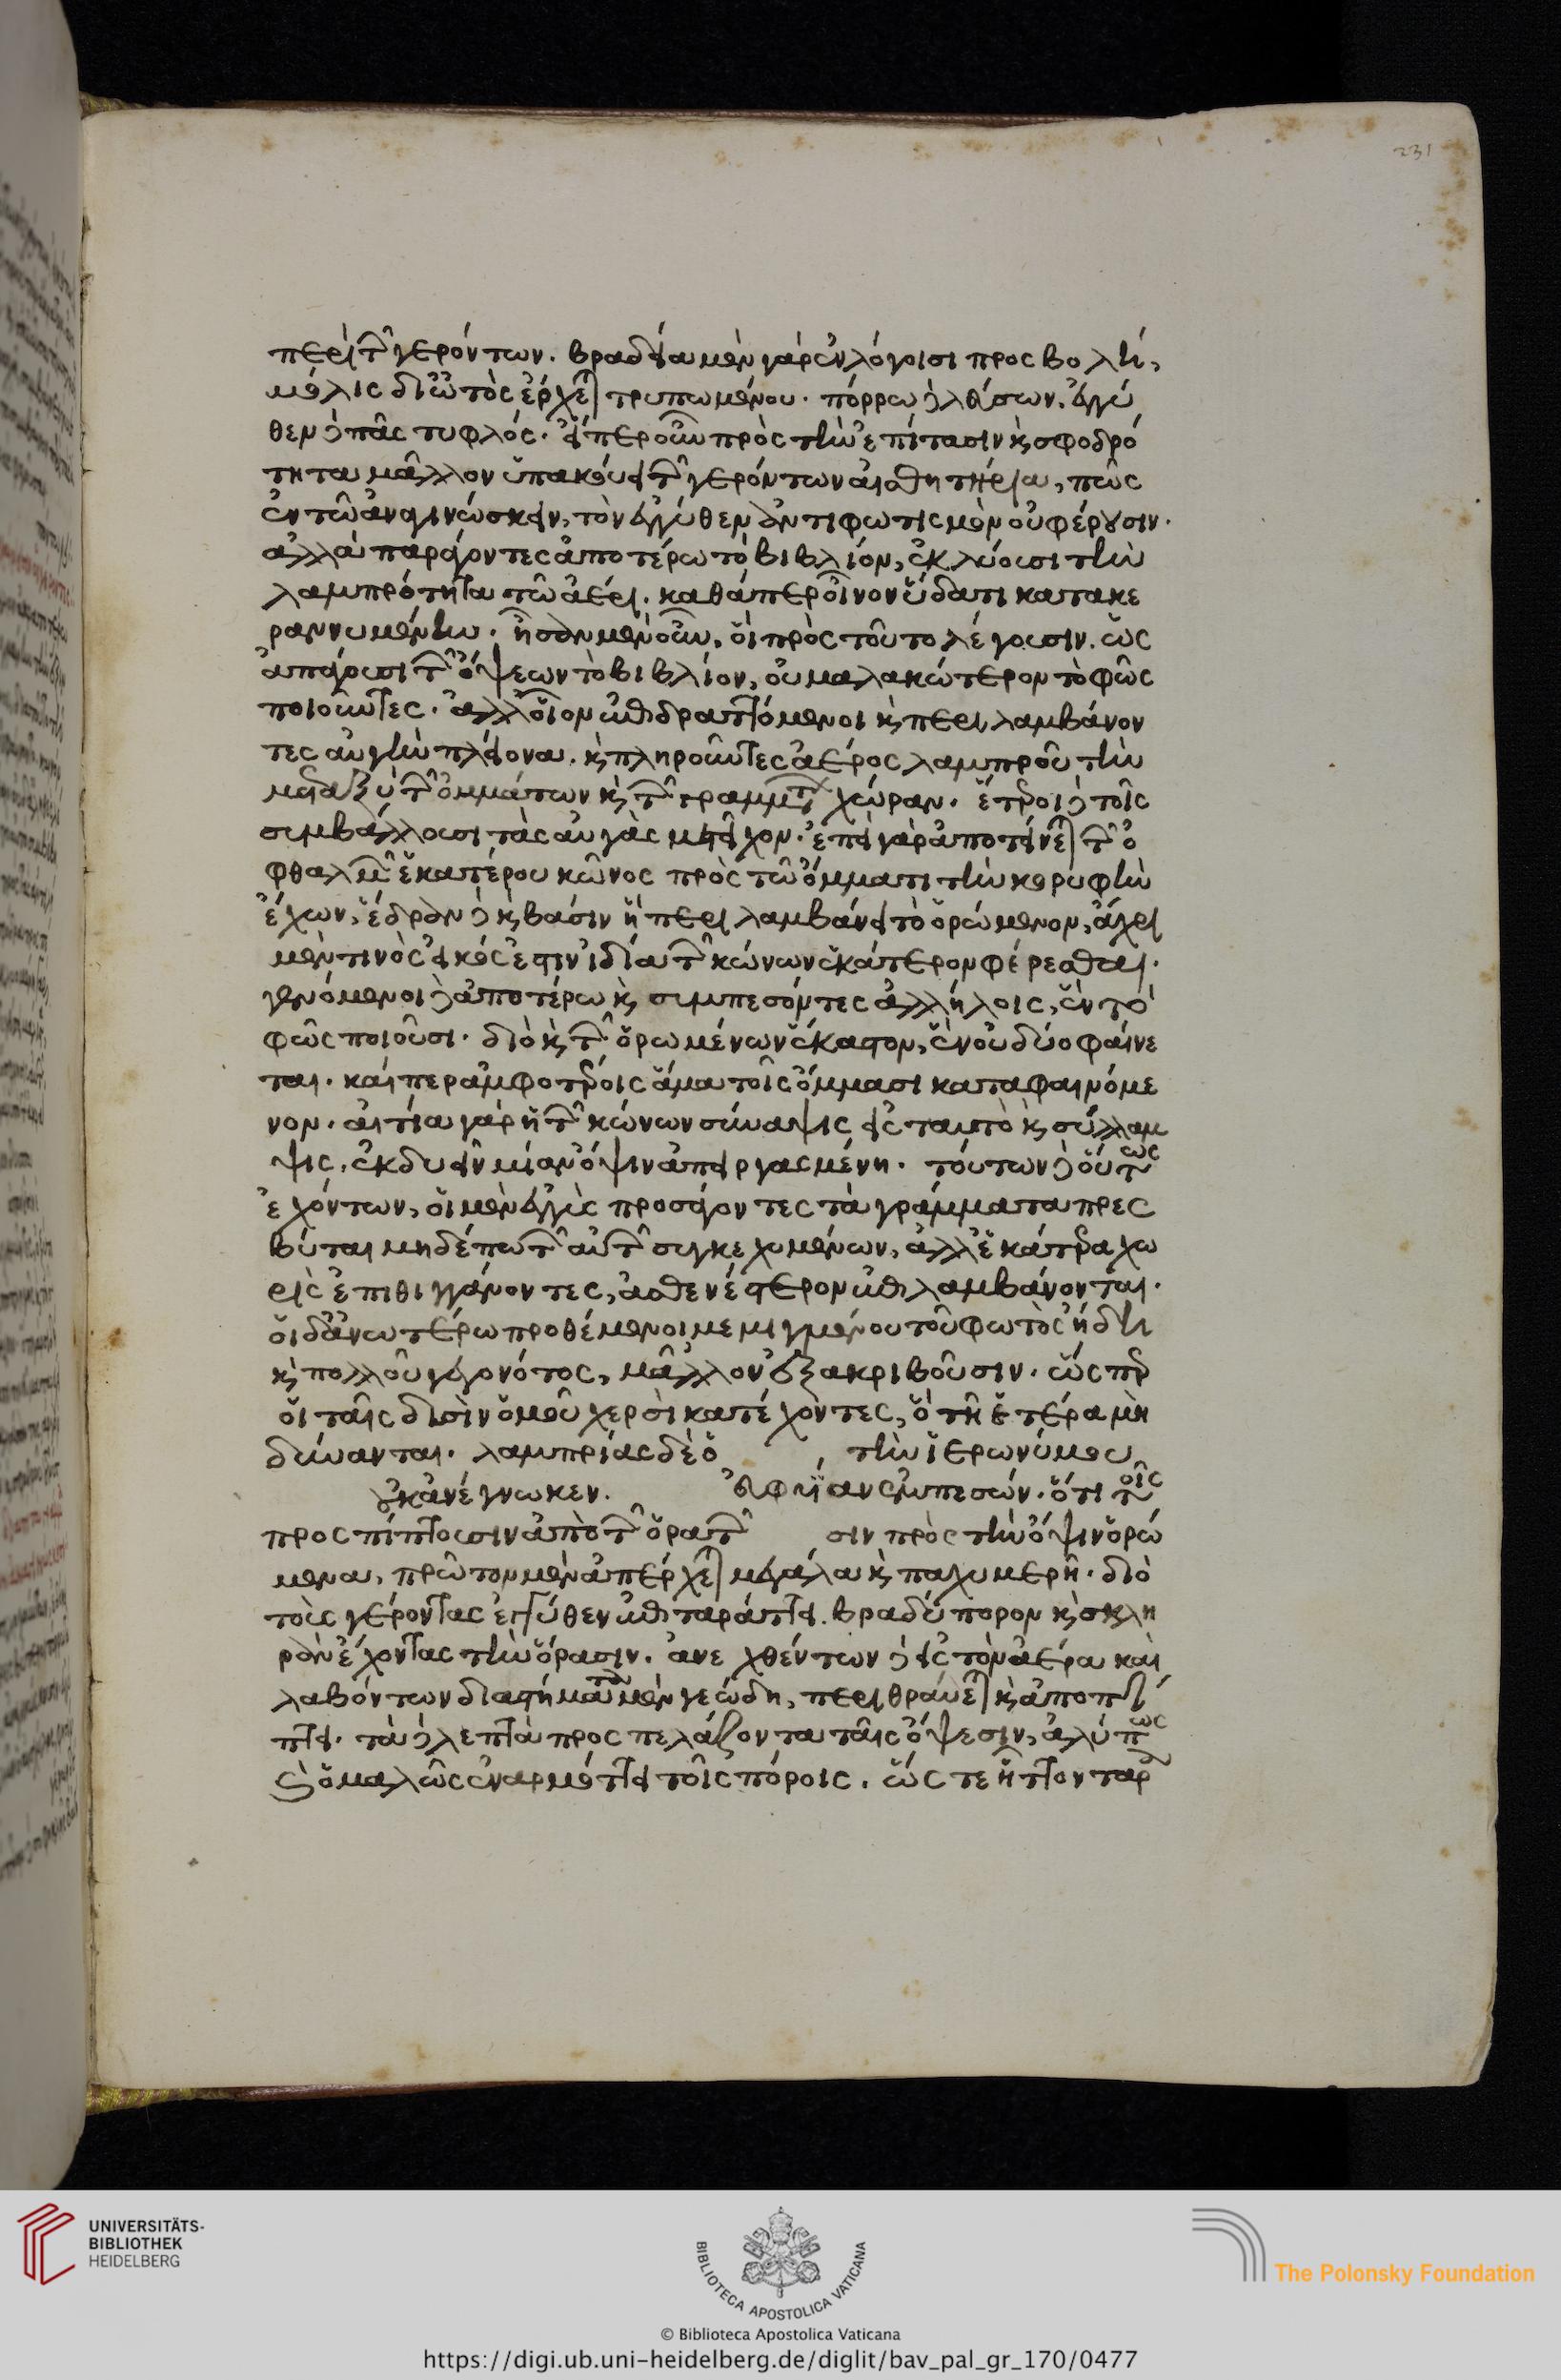 231
περὶ τῶν γερόντων. βραδεῖα μὲν γὰρ ἐν λόγοισι προσβολή,
μόλις δι' ὠτὸς ἔρχεται τρυπωμένου. πόρρω δὲ λεύσων, ἐγγύ
θεν δὲ πᾶς τυφλός. εἴπερ οὖν πρὸς τὴν ἐπίτασιν καὶ σφοδρό
τητα μᾶλλον ὑπακούει τῶν γερόντων αἰσθητήρια, πῶς
ἐν τῷ ἀναγινώσκειν, τὸν ἐγγύθεν ἀντιφωτισμὸν οὐ φέρουσιν.
ἀλλὰ παράγοντες ἀποτέρω τὸ βιβλίον, ἐκλύουσι τὴν
λαμπρότητα τῷ ἀέρι. καθάπερ οἶνον ὕδατι κατακε
ραννυμένην. ἦσαν μὲν οὖν, οἱ πρὸς τοῦτο λέγουσιν. ὡς
ἀπάγουσι τῶν ὄψεων τὸ βιβλίον, οὐ μαλακώτερον τὸ φῶς
ποιοῦντες. ἀλλ' οἷον ἐπιδραττόμενοι καὶ περιλαμβάνον
τες αὐγὴν πλείονα. καὶ πληροῦντες ἀέρος λαμπροῦ τὴν
μεταξὺ τῶν ὀμμάτων καὶ τῶν γραμμάτων χώραν. ἕτεροι δὲ τοῖς
συμβάλλουσι τὰς αὐγὰς μετεῖχον. ἐπεὶ γὰρ ἀποτείνεται τῶν ὀ
φθαλμῶν ἑκατέρου κῶνος πρὸς τῷ ὄμματι τὴν κορυφὴν
ἔχων, ἕδραν δὲ καὶ βάσιν ἣ περιλαμβάνει τὸ ὁρώμενον, ἄχρι
μέν τινὸς εἰκός ἐστιν ἰδία τῶν κώνων ἑκάτερον φέρεσθαι.
γενόμενοι δὲ ἀποτέρω καὶ συμπεσόντες ἀλλήλοις, ἓν τὸ
φῶς ποιοῦσι. διὸ καὶ τῶν ὁρωμένων ἕκαστον, ἓν οὐ δύο φαίνε
ται. καίπερ ἀμφοτέροις ἅμα τοῖς ὄμμασι καταφαινόμε
νον. αἰτία γὰρ ἡ τῶν κώνων σύναψις εἰς ταυτὸ καὶ σύλλαμ
ψις, ἐκ δυεῖν μίαν ὄψιν ἀπειργασμένη. τούτων δὲ οὕτως
ἐχόντων, οἱ μὲν ἐγγὺς προσάγοντες τὰ γράμματα πρεσ
βύται μηδέπω τῶν αὐγῶν συγκεχυμένων, ἀλλ' ἑκατέρα χω
ρὶς ἐπιθιγγάνοντες, ἀσθενέστερον ἐπιλαμβάνονται.
οἱ δ' ἀνωτέρω προθέμενοι μεμιγμένου τοῦ φωτὸς ἤδη
καὶ πολλοῦ γεγονότος, μᾶλλον ἐξακριβοῦσιν. ὥσπερ
οἱ ταῖς δυσὶν ὁμοῦ χερσὶ κατέχοντες, ὃ τῇ ἑτέρα μὴ
δύνανται. λαμπρίας δὲ ὁ , τὴν ἱερωνύμου
οὐκ ἀνέγνωκεν. εὐφυΐαν ἐμπεσών. ὅτι τοῖς
προσπίπτουσιν ἀπὸ τῶν ὁρατῶν σιν πρὸς τὴν ὄψιν ὁρώ
μενα, πρῶτον μὲν ἀπέρχεται μεγάλα καὶ παχυμερῆ. διὸ
τοὺς γέροντας ἐγγύθεν ἐπιταράττει. βραδύπορον καὶ σκλη
ρὰν ἔχοντας τὴν ὅρασιν. ἀνεχθέντων δὲ εἰς τὸν ἀέρα καὶ
λαβόντων διάστημα τὰ μὲν γεώδη, περιθραύεται καὶ ἀποπί
πτει. τὰ δὲ λεπτὰ προσπελάζοντα ταῖς ὄψεσιν, ἀλύπως
καὶ ὁμαλῶς ἐναρμόττει τοῖς πόροις. ὥστε ἧττον ταρ
UNIVERSITÄTS-
BIBLIOTHEK
HEIDELBERG
BIBLIOTECA APOSTOLICA VATICANA
The Polonsky Foundation
© Biblioteca Apostolica Vaticana
https://digi.ub.uni-heidelberg.de/diglit/bav_pal_gr_170/0477